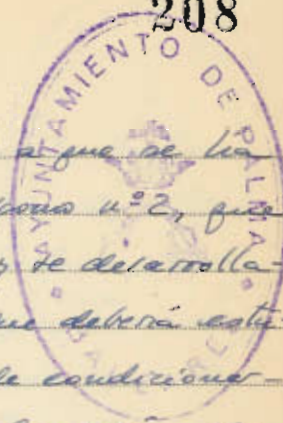 208
AYUNTAMIENTO DE PALMA
a que se ha
nº 2, que
se desarrolla-
que deberá estu-
de condiciones-